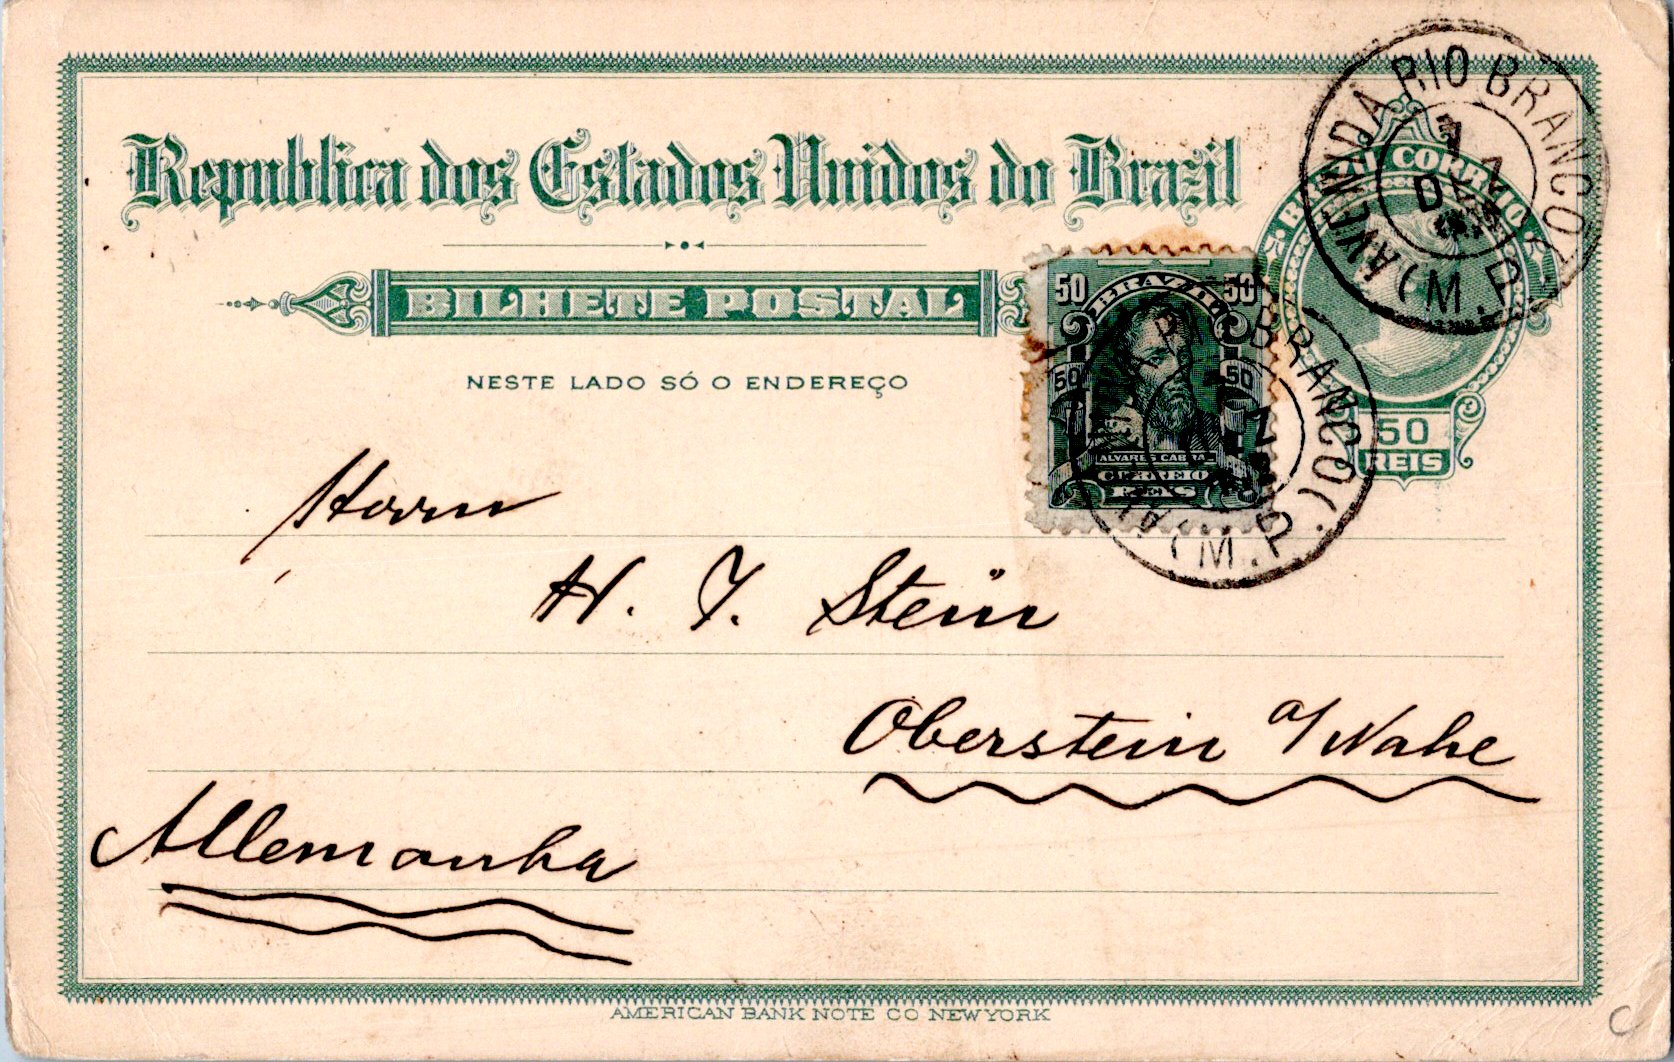 Republica dos Estados Unidos do Brazil
BILHETE POSTAL
NESTE LADO SÓ O ENDEREÇO
AVENIDA RIO BRANCO (M.P.)
CORREIO
50
REIS
50 BRAZIL 50
50 50
ALVARES CABRAL
CORREIO
REIS
BRANCO (M.P.)
Herrn
H. J. Stein
Oberstein a/Nahe
Allemanha
AMERICAN BANK NOTE CO NEW YORK
C